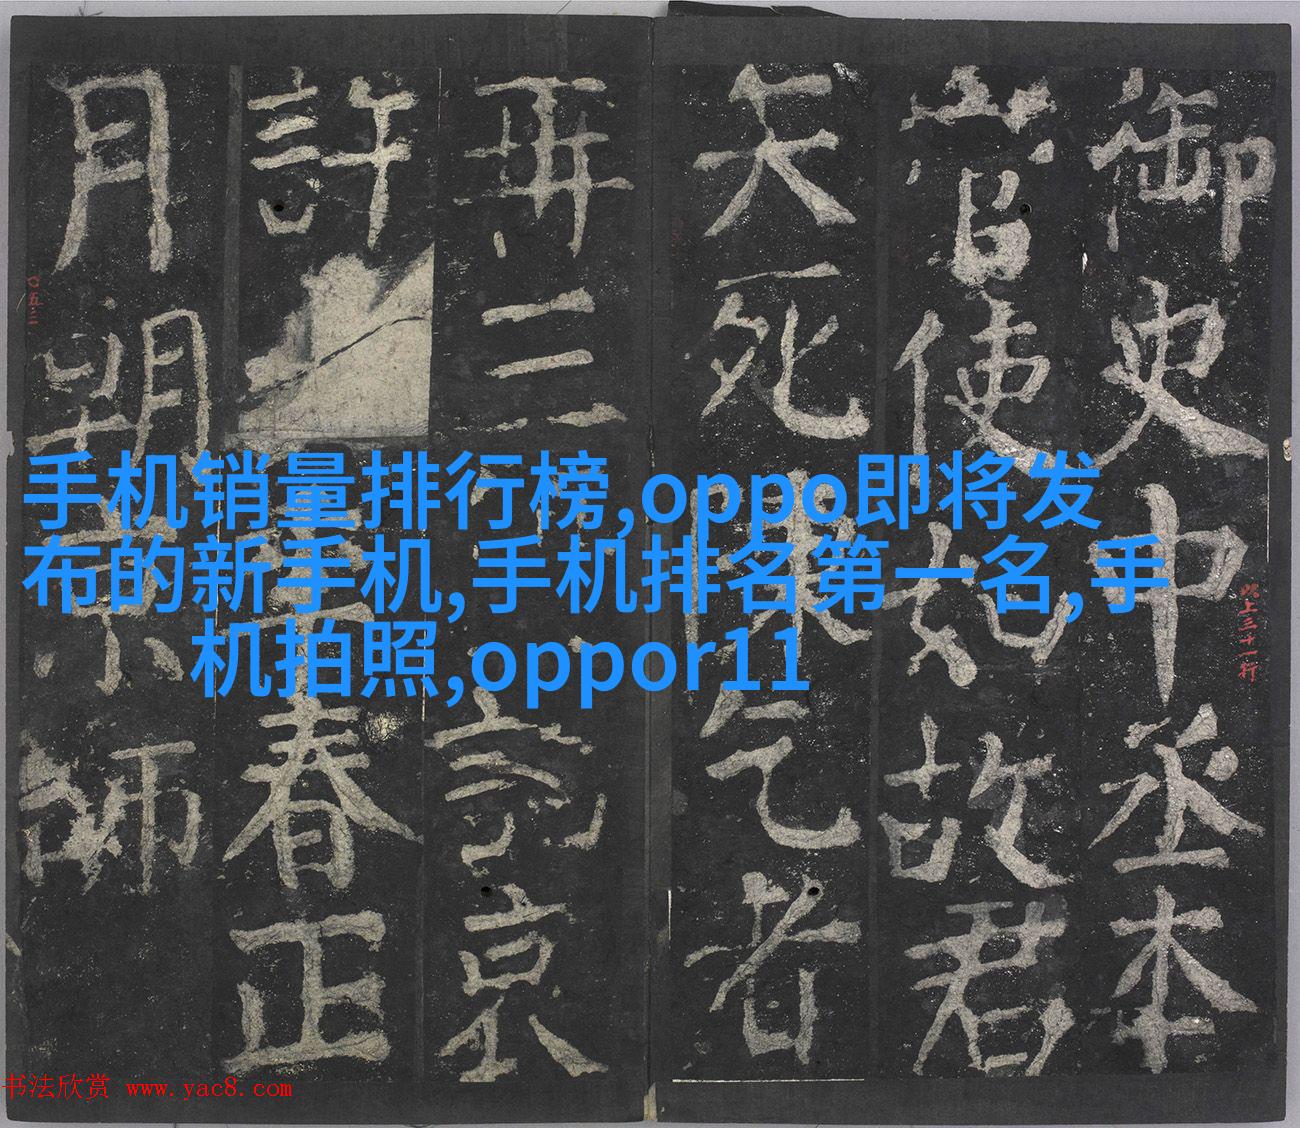 御史中丞本
使如故君
矢死乞者
再三京
許春正
月朔京師
手机销量排行榜,oppo即将发
布的新手机,手机排名第一名,手
机拍照,oppor11
此上三十一行
〇五三
书法欣赏 www.yac8.com